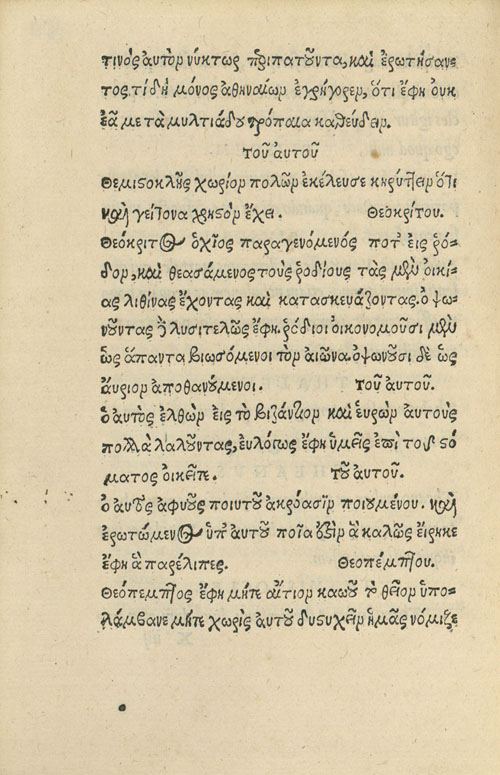 τινὸς αὐτὸν νύκτωρ περιπατοῦντα, καὶ ἐρωτήσαν-
τος τί δὴ μόνος ἀθηναίων ἐγρήγορεν, ὅτι ἔφη οὐκ
ἐᾷ με τὰ μιλτιάδου τρόπαια καθεύδειν.
Τοῦ αὐτοῦ
Θεμιστοκλῆς χωρίον πολῶν ἐκέλευσε κηρύττειν ὅτι
καὶ γείτονα χρηστὸν ἔχει. Θεοκρίτου.
Θεόκριτος ὁ χῖος παραγενόμενός ποτ' εἰς ῥό-
δον, καὶ θεασάμενος τοὺς ῥοδίους τὰς μὲν οἰκί-
ας λιθίνας ἔχοντας καὶ κατασκευάζοντας. ὀψω-
νοῦντας λυσιτελῶς ἔφη. ῥόδιοι οἰκονομοῦσι μὲν
ὡς ἅπαντα βιωσόμενοι τὸν αἰῶνα. ὀψωνοῦσι δὲ ὡς
αὔριον ἀποθανούμενοι. Τοῦ αὐτοῦ.
ὁ αὐτὸς ἐλθὼν εἰς τὸ βιζάντιον καὶ εὑρὼν αὐτοὺς
πολλὰ λαλοῦντας, εὐλόγως ἔφη ὑμεῖς ἐπὶ τοῦ στό-
ματος οἰκεῖτε. Τοῦ αὐτοῦ.
ὁ αὐτὸς ἀφυοῦς ποιητοῦ ἀκρόασιν ποιουμένου. καὶ
ἐρωτώμενος ὑπ' αὐτοῦ ποῖα ἐστὶν ἃ καλῶς εἴρηκε
ἔφη ἃ παρέλιπες. Θεοπέμπτου.
Θεόπεμπτος ἔφη μήτε αἴτιον κακοῦ τὸ θεῖον ὑπο-
λάμβανε μήτε χωρὶς αὐτοῦ δυστυχεῖν ἡμᾶς νόμιζε